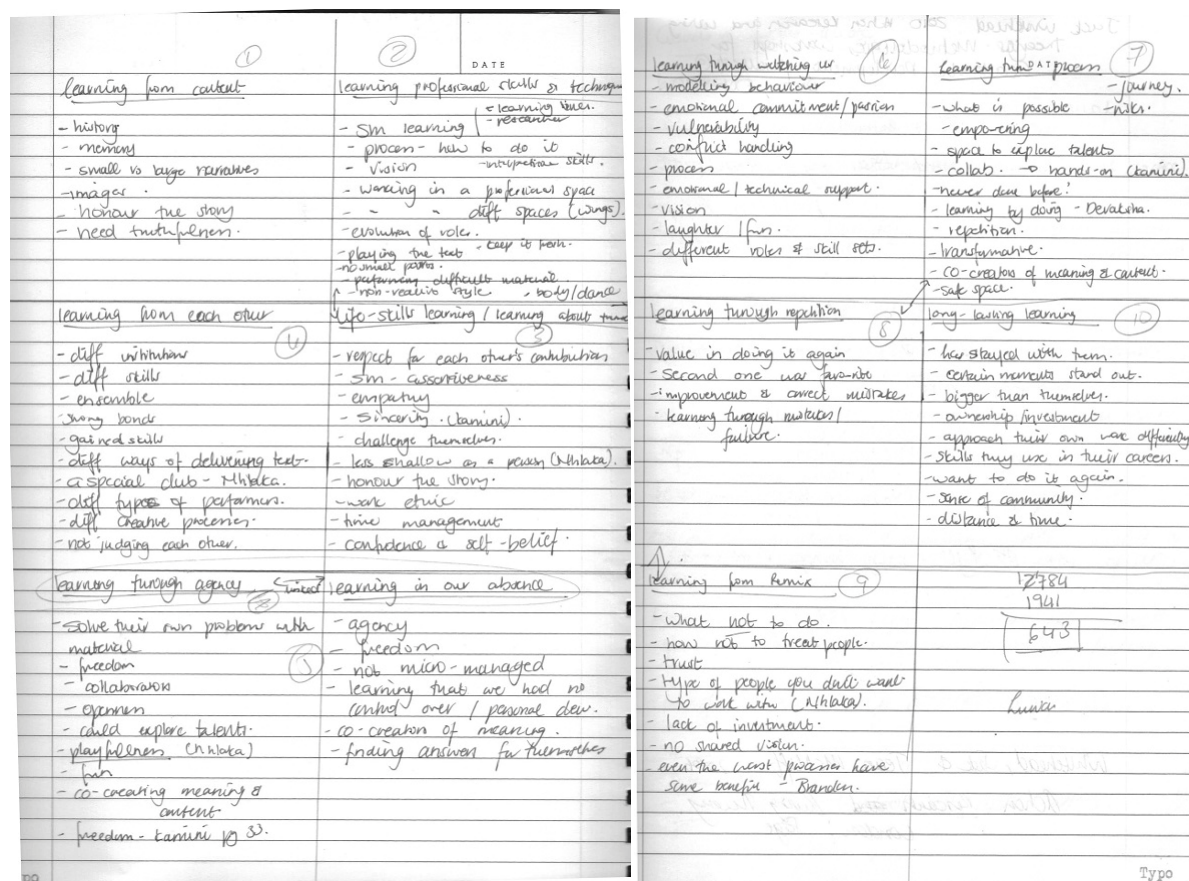 1
learning from content
- history
- memory
- small vs large narratives
- images.
- honour the story
- need truthfulness.
2
DATE
learning professional skills &
- learning lines.
- researcher
- SM learning
- process - how to do it
- vision
- interpretive skills.
- working in a professional space
- " " diff spaces (wings).
- evolution of roles.
- playing the text
- keep it fresh.
- no small parts.
- performing difficult material
- non-realistic style
- body/dance
learning from each other
4
- diff institutions
- diff skills
- ensemble
strong bonds
- gained skills
- diff ways of delivering text.
- a special club - Nhlaka.
- diff types of performers.
- diff creative processes.
- not judging each other.
life-skills learning / learning about
3
- respect for each other's contribution
- SM - assertiveness
- empathy
- sincerity. (Kamini).
- challenge themselves.
- less shallow as a person (Nhlaka).
- honour the story.
- work ethic
- time management
- confidence & self-belief.
learning through agency
5
- solve their own problems with
material
- freedom
- collaborators
- openness
- could explore talents.
- playfulness (Nhlaka)
- fun
- co-creating meaning &
content
- freedom - Kamini pg 33.
linked
learning in our absence
- agency
- freedom
- not micro-managed
- learning that we had no
control over / personal dev.
- co-creation of meaning.
- finding answers for themselves
learning through watching us
6
- modelling behaviour
- emotional commitment/passion
- vulnerability
- conflict handling
- process
- emotional/technical support.
- vision
- laughter/fun.
- different roles & skill sets.
learning thru process
DAT
7
- journey.
- what is possible
- risks.
- empowering
- space to explore talents
- collab. → hands-on (Kamini).
- never done before!
- learning by doing - Devaksha.
- repetition.
- transformative.
- co-creators of meaning & content.
- safe space.
learning through repetition
8
- value in doing it again
- second one was favourite
- improvement & correct mistakes
- learning through mistakes/
failure.
long-lasting learning
10
- has stayed with them.
- certain moments stand out.
- bigger than themselves.
- ownership/investment
- approach their own work differently
- skills they use in their careers.
- want to do it again.
- sense of community.
- distance & time.
learning from Remix
9
- what not to do.
- how not to treat people.
- trust
- type of people you don't want
to work with (Nhlaka).
- lack of investment.
- no shared vision.
- even the worst processes have
some benefits - Branden.
12784
1941
643
Typo